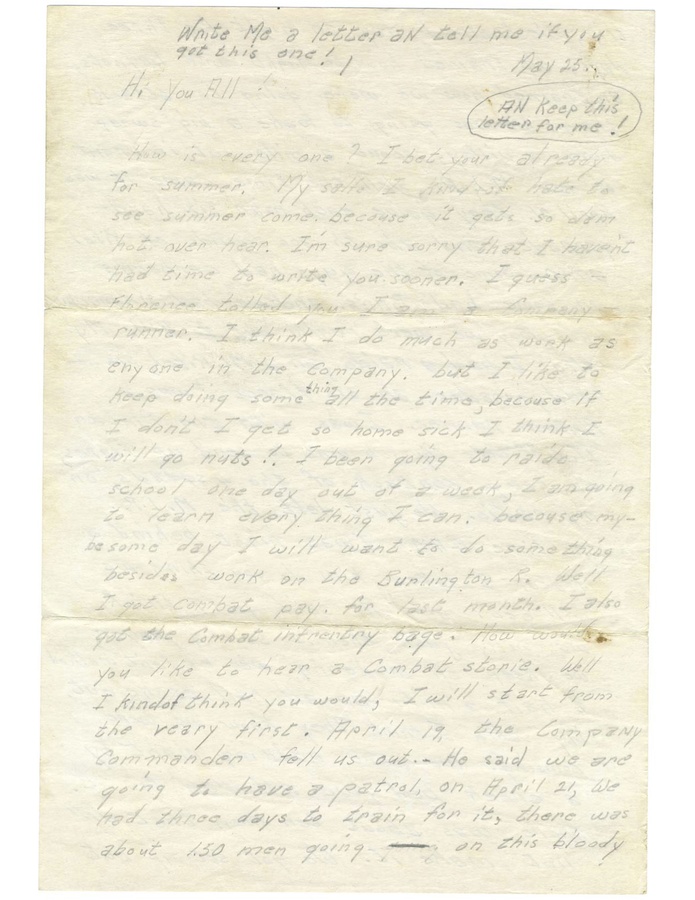 Write Me a letter aN tell me if you
got this one!!
May 25.
Hi You All!
AN Keep this
letter for me!
How is every one? I bet your already
for summer. My self I kind of hate to
see summer come. becouse it gets so dam
hot over hear. I'm sure sorry that I haven't
had time to write you sooner. I guess
Florence tolled you I am a Company
runner. I think I do much as work as
enyone in the Company. but I like to
keep doing some thing all the time, becouse if
I don't I get so home sick I think I
will go nuts!. I been going to raido
school one day out of a week, I am going
to learn every thing I can. becouse my-
be some day I will want to do something
besides work on the Burlington R. Well
I got combat pay. for last month. I also
got the Combat infrentry bage. How would
you like to hear a Combat storie. Well
I kindof think you would, I will start from
the veary first. April 19, the Company
Commander fell us out.- He said we are
going to have a patrol, on April 21, We
had three days to train for it, there was
about 150 men going on this bloody